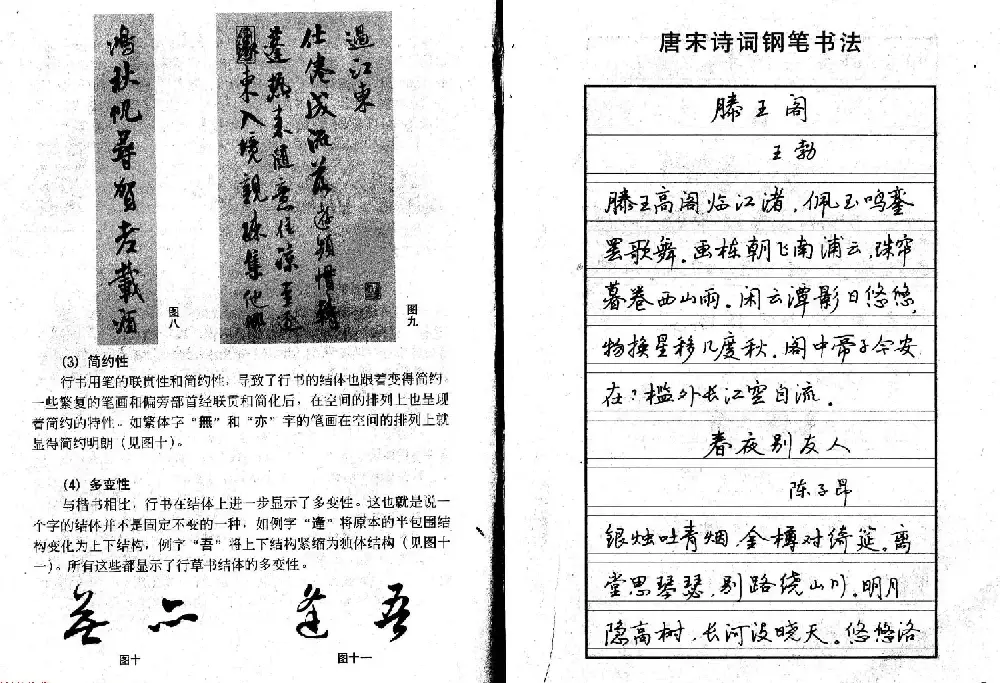 鸿秋帆寻贺老载酒
图八
過江東
仕倦成流落遊頻慣轉
蓬熱来隨意住涼至逐
東入境親疎集他鄉
图九
(3) 简约性
行书用笔的联贯性和简约性，导致了行书的结体也跟着变得简约，
一些繁复的笔画和偏旁部首经联贯和简化后，在空间的排列上也呈现
着简约的特性。如繁体字“無”和“亦”字的笔画在空间的排列上就
显得简约明朗（见图十）。
(4) 多变性
与楷书相比，行书在结体上进一步显示了多变性。这也就是说一
个字的结体并不是固定不变的一种，如例字“逢”将原本的半包围结
构变化为上下结构，例字“吾”将上下结构紧缩为独体结构（见图十
一）。所有这些都显示了行草书结体的多变性。
無 亦 逢 吾
图十 图十一
唐宋诗词钢笔书法
滕王阁
王勃
滕王高阁临江渚，佩玉鸣銮
罢歌舞。画栋朝飞南浦云，珠帘
暮卷西山雨。闲云潭影日悠悠，
物换星移几度秋。阁中帝子今安
在？槛外长江空自流。
春夜别友人
陈子昂
银烛吐青烟，金樽对绮筵。离
堂思琴瑟，别路绕山川。明月
隐高树，长河没晓天。悠悠洛